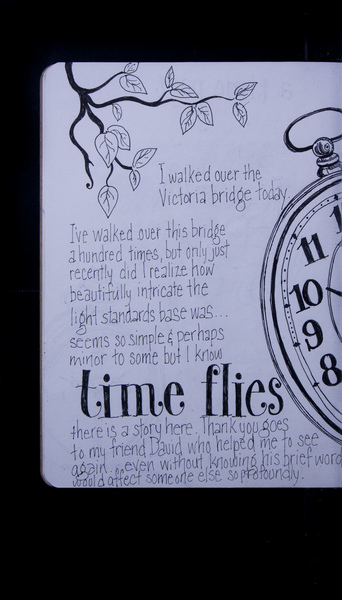 I walked over the
Victoria bridge today
I've walked over this bridge
a hundred times, but only just
recently did I realize how
beautifully intricate the
light standards base was...
seems so simple & perhaps
minor to some but I know
time flies
there is a story here. Thank you goes
to my friend David who helped me to see
again... even without knowing his brief word
would affect someone else so profoundly.
11
10
9
8